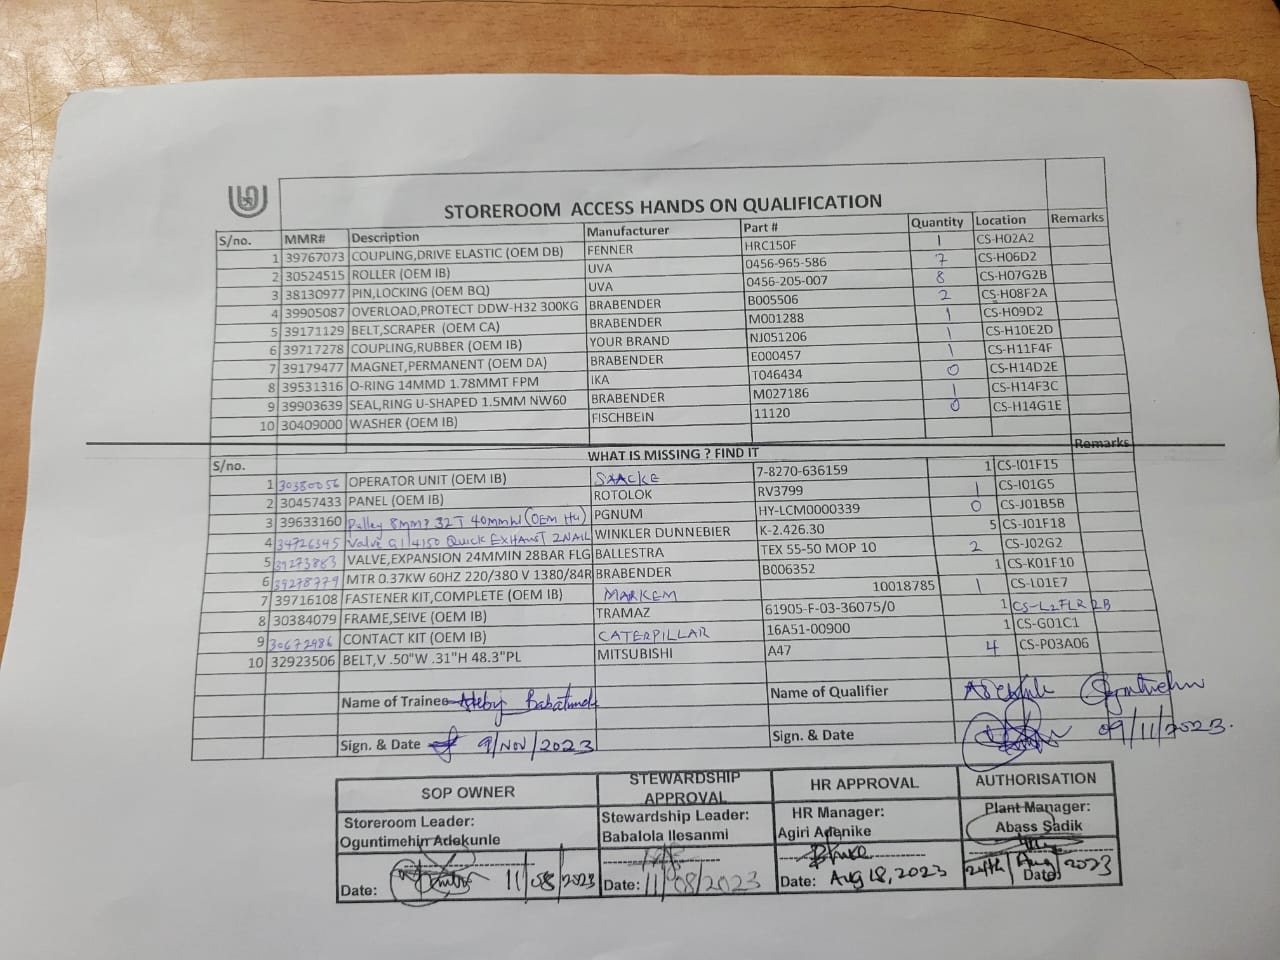 STOREROOM ACCESS HANDS ON QUALIFICATION
S/no. MMR# Description Manufacturer Part # Quantity Location Remarks
1 39767073 COUPLING,DRIVE ELASTIC (OEM DB) FENNER HRC150F 1 CS-H02A2
2 30524515 ROLLER (OEM IB) UVA 0456-965-586 7 CS-H06D2
3 38130977 PIN,LOCKING (OEM BQ) UVA 0456-205-007 8 CS-H07G2B
4 39905087 OVERLOAD,PROTECT DDW-H32 300KG BRABENDER B005506 2 CS-H08F2A
5 39171129 BELT,SCRAPER (OEM CA) BRABENDER M001288 1 CS-H09D2
6 39717278 COUPLING,RUBBER (OEM IB) YOUR BRAND NJ051206 1 CS-H10E2D
7 39179477 MAGNET,PERMANENT (OEM DA) BRABENDER E000457 1 CS-H11F4F
8 39531316 O-RING 14MMD 1.78MMT FPM IKA T046434 0 CS-H14D2E
9 39903639 SEAL,RING U-SHAPED 1.5MM NW60 BRABENDER M027186 1 CS-H14F3C
10 30409000 WASHER (OEM IB) FISCHBEIN 11120 0 CS-H14G1E
S/no. WHAT IS MISSING ? FIND IT Remarks
1 30380056 OPERATOR UNIT (OEM IB) SAACKE 7-8270-636159 1 CS-I01F15
2 30457433 PANEL (OEM IB) ROTOLOK RV3799 1 CS-I01G5
3 39633160 Pulley 8mmP 32T 40mmW (OEM Hu) PGNUM HY-LCM0000339 0 CS-J01B5B
4 34726345 Valve G1/4150 Quick EXHAUST 2NAIL WINKLER DUNNEBIER K-2.426.30 5 CS-J01F18
5 39273883 VALVE,EXPANSION 24MMIN 28BAR FLG BALLESTRA TEX 55-50 MOP 10 2 CS-J02G2
6 39278779 MTR 0.37KW 60HZ 220/380 V 1380/84R BRABENDER B006352 1 CS-K01F10
7 39716108 FASTENER KIT,COMPLETE (OEM IB) MARKEM 10018785 1 CS-L01E7
8 30384079 FRAME,SEIVE (OEM IB) TRAMAZ 61905-F-03-36075/0 1 CS-L2FLR2B
9 30672986 CONTACT KIT (OEM IB) CATERPILLAR 16A51-00900 1 CS-G01C1
10 32923506 BELT,V .50"W .31"H 48.3"PL MITSUBISHI A47 4 CS-P03A06
Name of Trainee Babatunde Name of Qualifier Adekunle Oguntimehin
Sign. & Date 9/NOV/2023 Sign. & Date 09/11/2023.
SOP OWNER STEWARDSHIP APPROVAL HR APPROVAL AUTHORISATION
Storeroom Leader: Stewardship Leader: HR Manager: Plant Manager:
Oguntimehin Adekunle Babalola Ilesanmi Agiri Adenike Abass Sadik
Date: 11/08/2023 Date: 11/08/2023 Date: Aug 18, 2023 24th/Aug/2023 Date